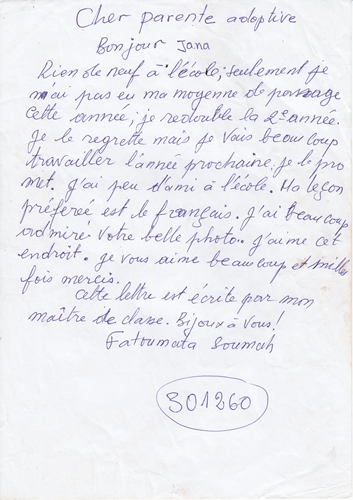 Cher parente adoptive
Bonjour Jana
Rien de neuf à l'école; seulement je
n'ai pas eu ma moyenne de passage
cette année; je redouble la 2e année.
Je le regrette mais je vais beaucoup
travailler l'année prochaine, je le pro
met. J'ai peu d'ami à l'école. Ma leçon
préféreé est le français. J'ai beaucoup
admiré votre belle photo. J'aime cet
endroit. je vous aime beaucoup et milles
fois mercis.
Cette lettre est écrite par mon
maître de classe. Bijoux à vous!
Fatoumata Soumah
301260